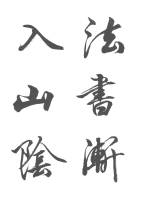 法書漸
入山陰